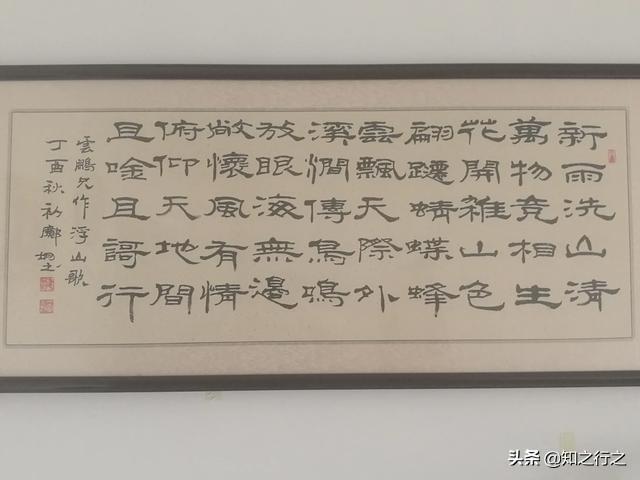 新雨洗山清
萬物竞相生
花開雜山色
翩躚蜻蝶蜂
雲飄天際外
溪澗傳鳥鳴
放眼海無邊
敞懷風有情
俯仰天地間
且唫且謌行
雲鵬兄作浮山歌
丁酉秋初
头条 @知之行之